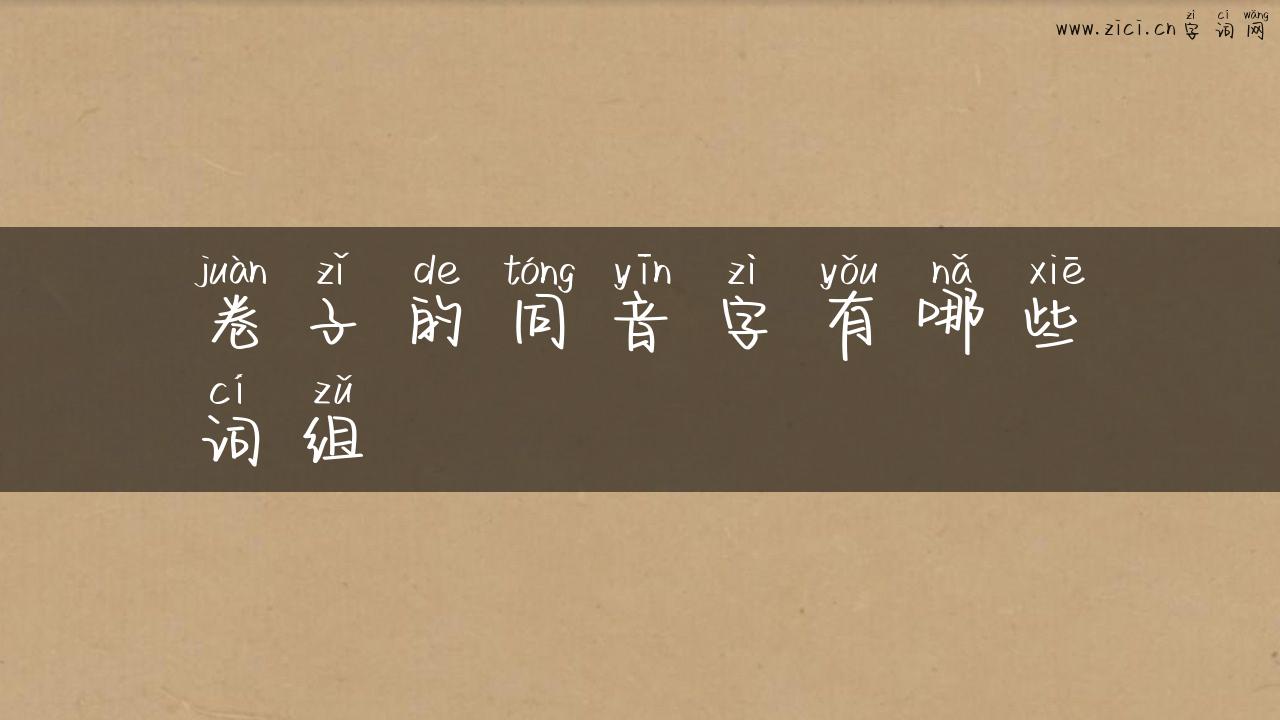 zì cí wǎng
www.zici.cn 字词网
juàn zǐ de tóng yīn zì yǒu nǎ xiē
卷子的同音字有哪些
cí zǔ
词组